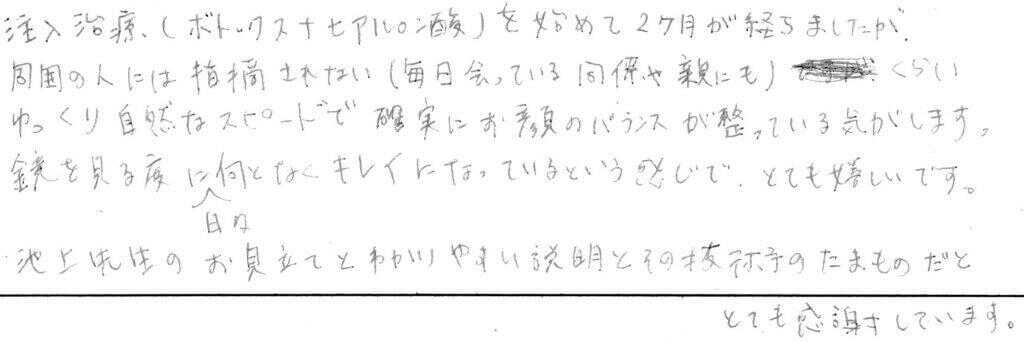 注入治療、(ボトックス+ヒアルロン酸)を始めて2ケ月が経ちましたが、
周囲の人には指摘されない(毎日会っている同僚や親にも)くらい
ゆっくり自然なスピードで確実にお顔のバランスが整っている気がします。
鏡を見る度に何となくキレイになっているという感じで、とても嬉しいです。
日々
池上先生のお見立てとわかりやすい説明とその技術のたまものだと
とても感謝しています。